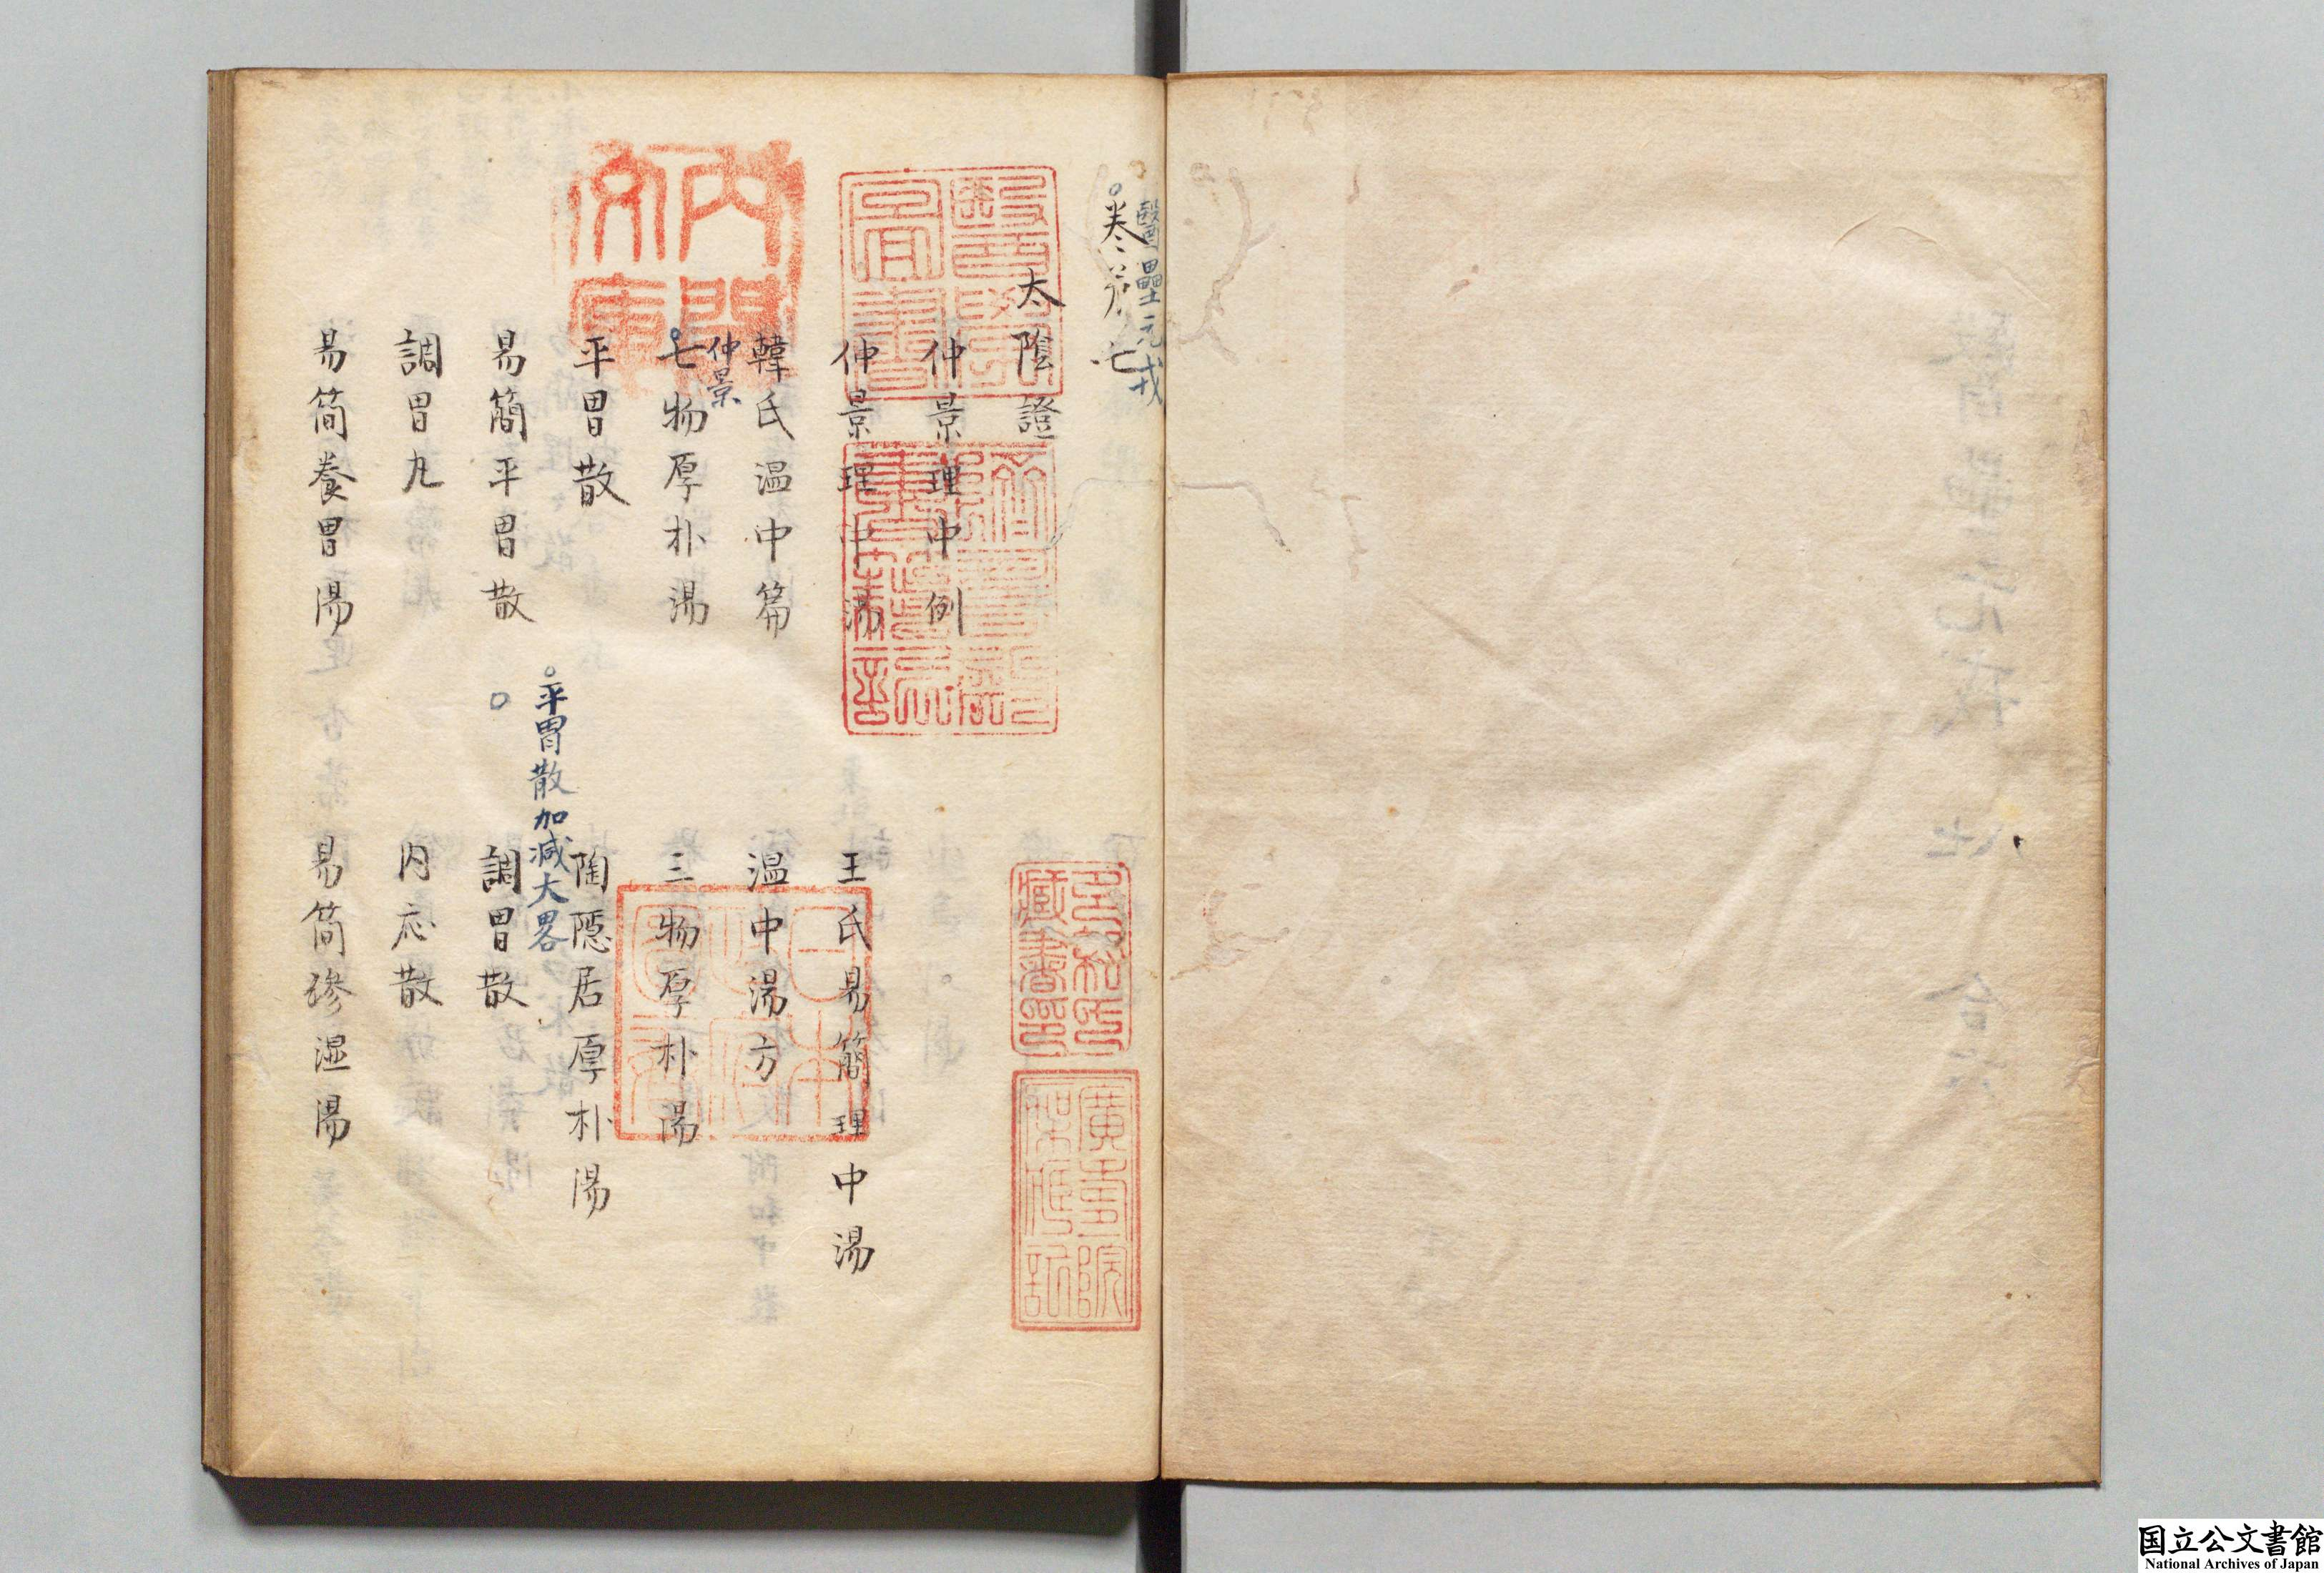 醫壘元戎
卷第七
太陰證
仲景理中例
仲景理中湯
王氏易簡理中湯
韓氏温中篇
温中湯方
仲景
七物厚朴湯
三物厚朴湯
平胃散
陶隠居厚朴湯
平胃散加減大畧
易簡平胃散
調胃散
調胃丸
内応散
易簡養胃湯
易簡滲湿湯
内閣文庫
日本政府圖書
躋壽殿書籍記
国立公文書館
National Archives of Japan